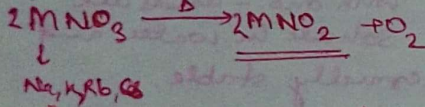 2MNO₃ —Δ→ 2MNO₂ + O₂
↓
Na, K, Rb, Cs